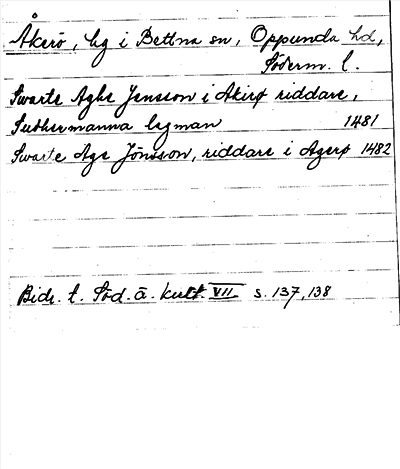 Åkerö, hg i Bettna sn, Oppunda hd,
Söderm. l.
Swarte Aghe Jensson i Akirø riddare,
Suthermanna lagman 1481
Swarte Age Jönsson, riddare i Agerø 1482
Bidr. t. Söd. ä. kult. VII s. 137, 138